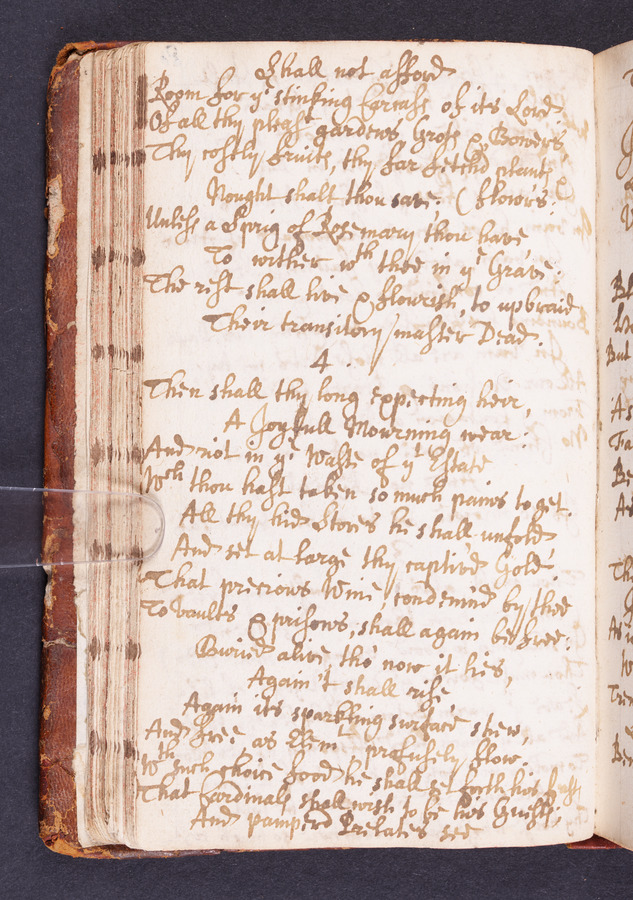 Shall not afford
Room for yᵉ stinking Carcass of its Lord
Of all thy pleast gardens Gross & Bowers,
Thy costly fruits, thy far fetchd plants &
Nought shalt thou save. ( flowrs:
Unless a Sprig of Rosemary thou have
To wither wᵗʰ thee in yᵉ Grave:
The rest shall live & flourish, to upbraid
Their transitory master Dead.
4.
Then shall thy long expecting heir,
A Joyfull Mourning wear:
And riot in yᵉ Waste of yᵗ Estate
Wᶜʰ thou hast taken so much pains to get.
All thy hid Stores he shall unfold
And set at large thy captiv'd Gold.
That precious Wine, condemn'd by thee
To vaults & prisons, shall again be free:
Buried alive tho' now it lies,
Again 't shall rise
Again its sparkling surface shew,
And free as Elemᵗ profusely flow.
Wᵗʰ such choice food he shall set forth his feasts
That Cardinals shall wish to be his Guests;
And pamperd Prelates see